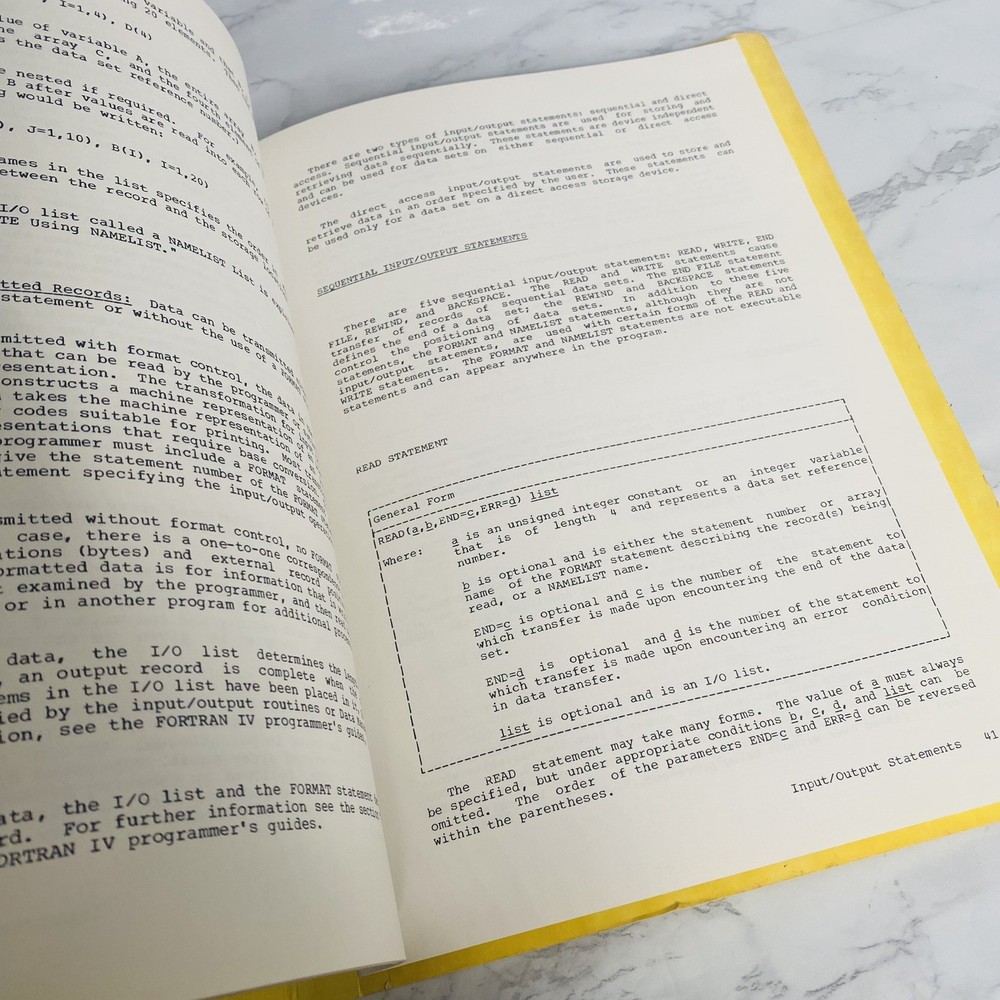 variable and
ng 20 elements.
, I=1,4), D(4)
lue of variable A, the entire
he array C, and the fourth
s the data set reference number
e nested if required. For example,
B after values are read into each
g would be written:
), J=1,10), B(I), I=1,20)
ames in the list specifies the order
between the record and the storage
I/O list called a NAMELIST list is
TE Using NAMELIST."
tted Records: Data can be transmitted
statement or without the use of a
mitted with format control, the data
that can be read by the programmer
resentation. The transformation for
onstructs a machine representation
takes the machine representation of
codes suitable for printing. Most
esentations that require base conversion
programmer must include a FORMAT
ive the statement number of the FORMAT
tement specifying the input/output
smitted without format control, no FORMAT
case, there is a one-to-one
ations (bytes) and external record
ormatted data is for information that is
t examined by the programmer, and then
or in another program for additional
data, the I/O list determines the
, an output record is complete when the
ems in the I/O list have been placed in it
ied by the input/output routines or
ion, see the FORTRAN IV programmer's guides
ata, the I/O list and the FORMAT statement
rd. For further information see the section
ORTRAN IV programmer's guides.
There are two types of input/output statements: sequential and direct
access. Sequential input/output statements are used for storing and
retrieving data sequentially. These statements are device independent
and can be used for data sets on either sequential or direct access
devices.
The direct access input/output statements are used to store and
retrieve data in an order specified by the user. These statements can
be used only for a data set on a direct access storage device.
SEQUENTIAL INPUT/OUTPUT STATEMENTS
There are five sequential input/output statements: READ, WRITE, END
FILE, REWIND, and BACKSPACE. The READ and WRITE statements cause
transfer of records of sequential data sets. The END FILE statement
defines the end of a data set; the REWIND and BACKSPACE statements
control the positioning of data sets. In addition to these five
statements, the FORMAT and NAMELIST statements, although they are not
input/output statements, are used with certain forms of the READ and
WRITE statements. The FORMAT and NAMELIST statements are not executable
statements and can appear anywhere in the program.
READ STATEMENT
General Form
READ(a,b,END=c,ERR=d) list
Where: a is an unsigned integer constant or an integer variable
that is of length 4 and represents a data set reference
number.
b is optional and is either the statement number or array
name of the FORMAT statement describing the record(s) being
read, or a NAMELIST name.
END=c is optional and c is the number of the statement to
which transfer is made upon encountering the end of the data
set.
END=d is optional and d is the number of the statement to
which transfer is made upon encountering an error condition
in data transfer.
list is optional and is an I/O list.
The READ statement may take many forms. The value of a must always
be specified, but under appropriate conditions b, c, d, and list can be
omitted. The order of the parameters END=c and ERR=d can be reversed
within the parentheses.
Input/Output Statements 41